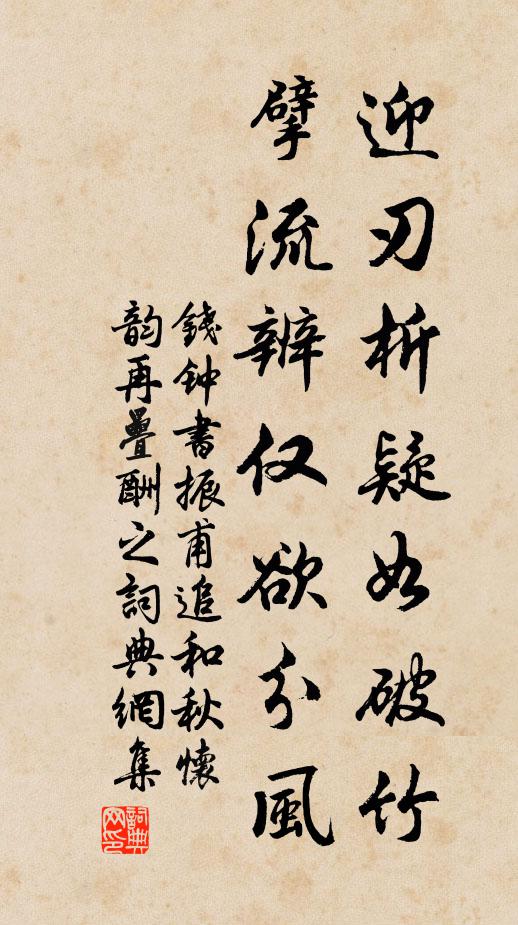 迎刃析疑如破竹
擘流辨仅欲分風
錢鍾書振甫追和秋懷
韵再疊酬之詞典網集
詞典网印